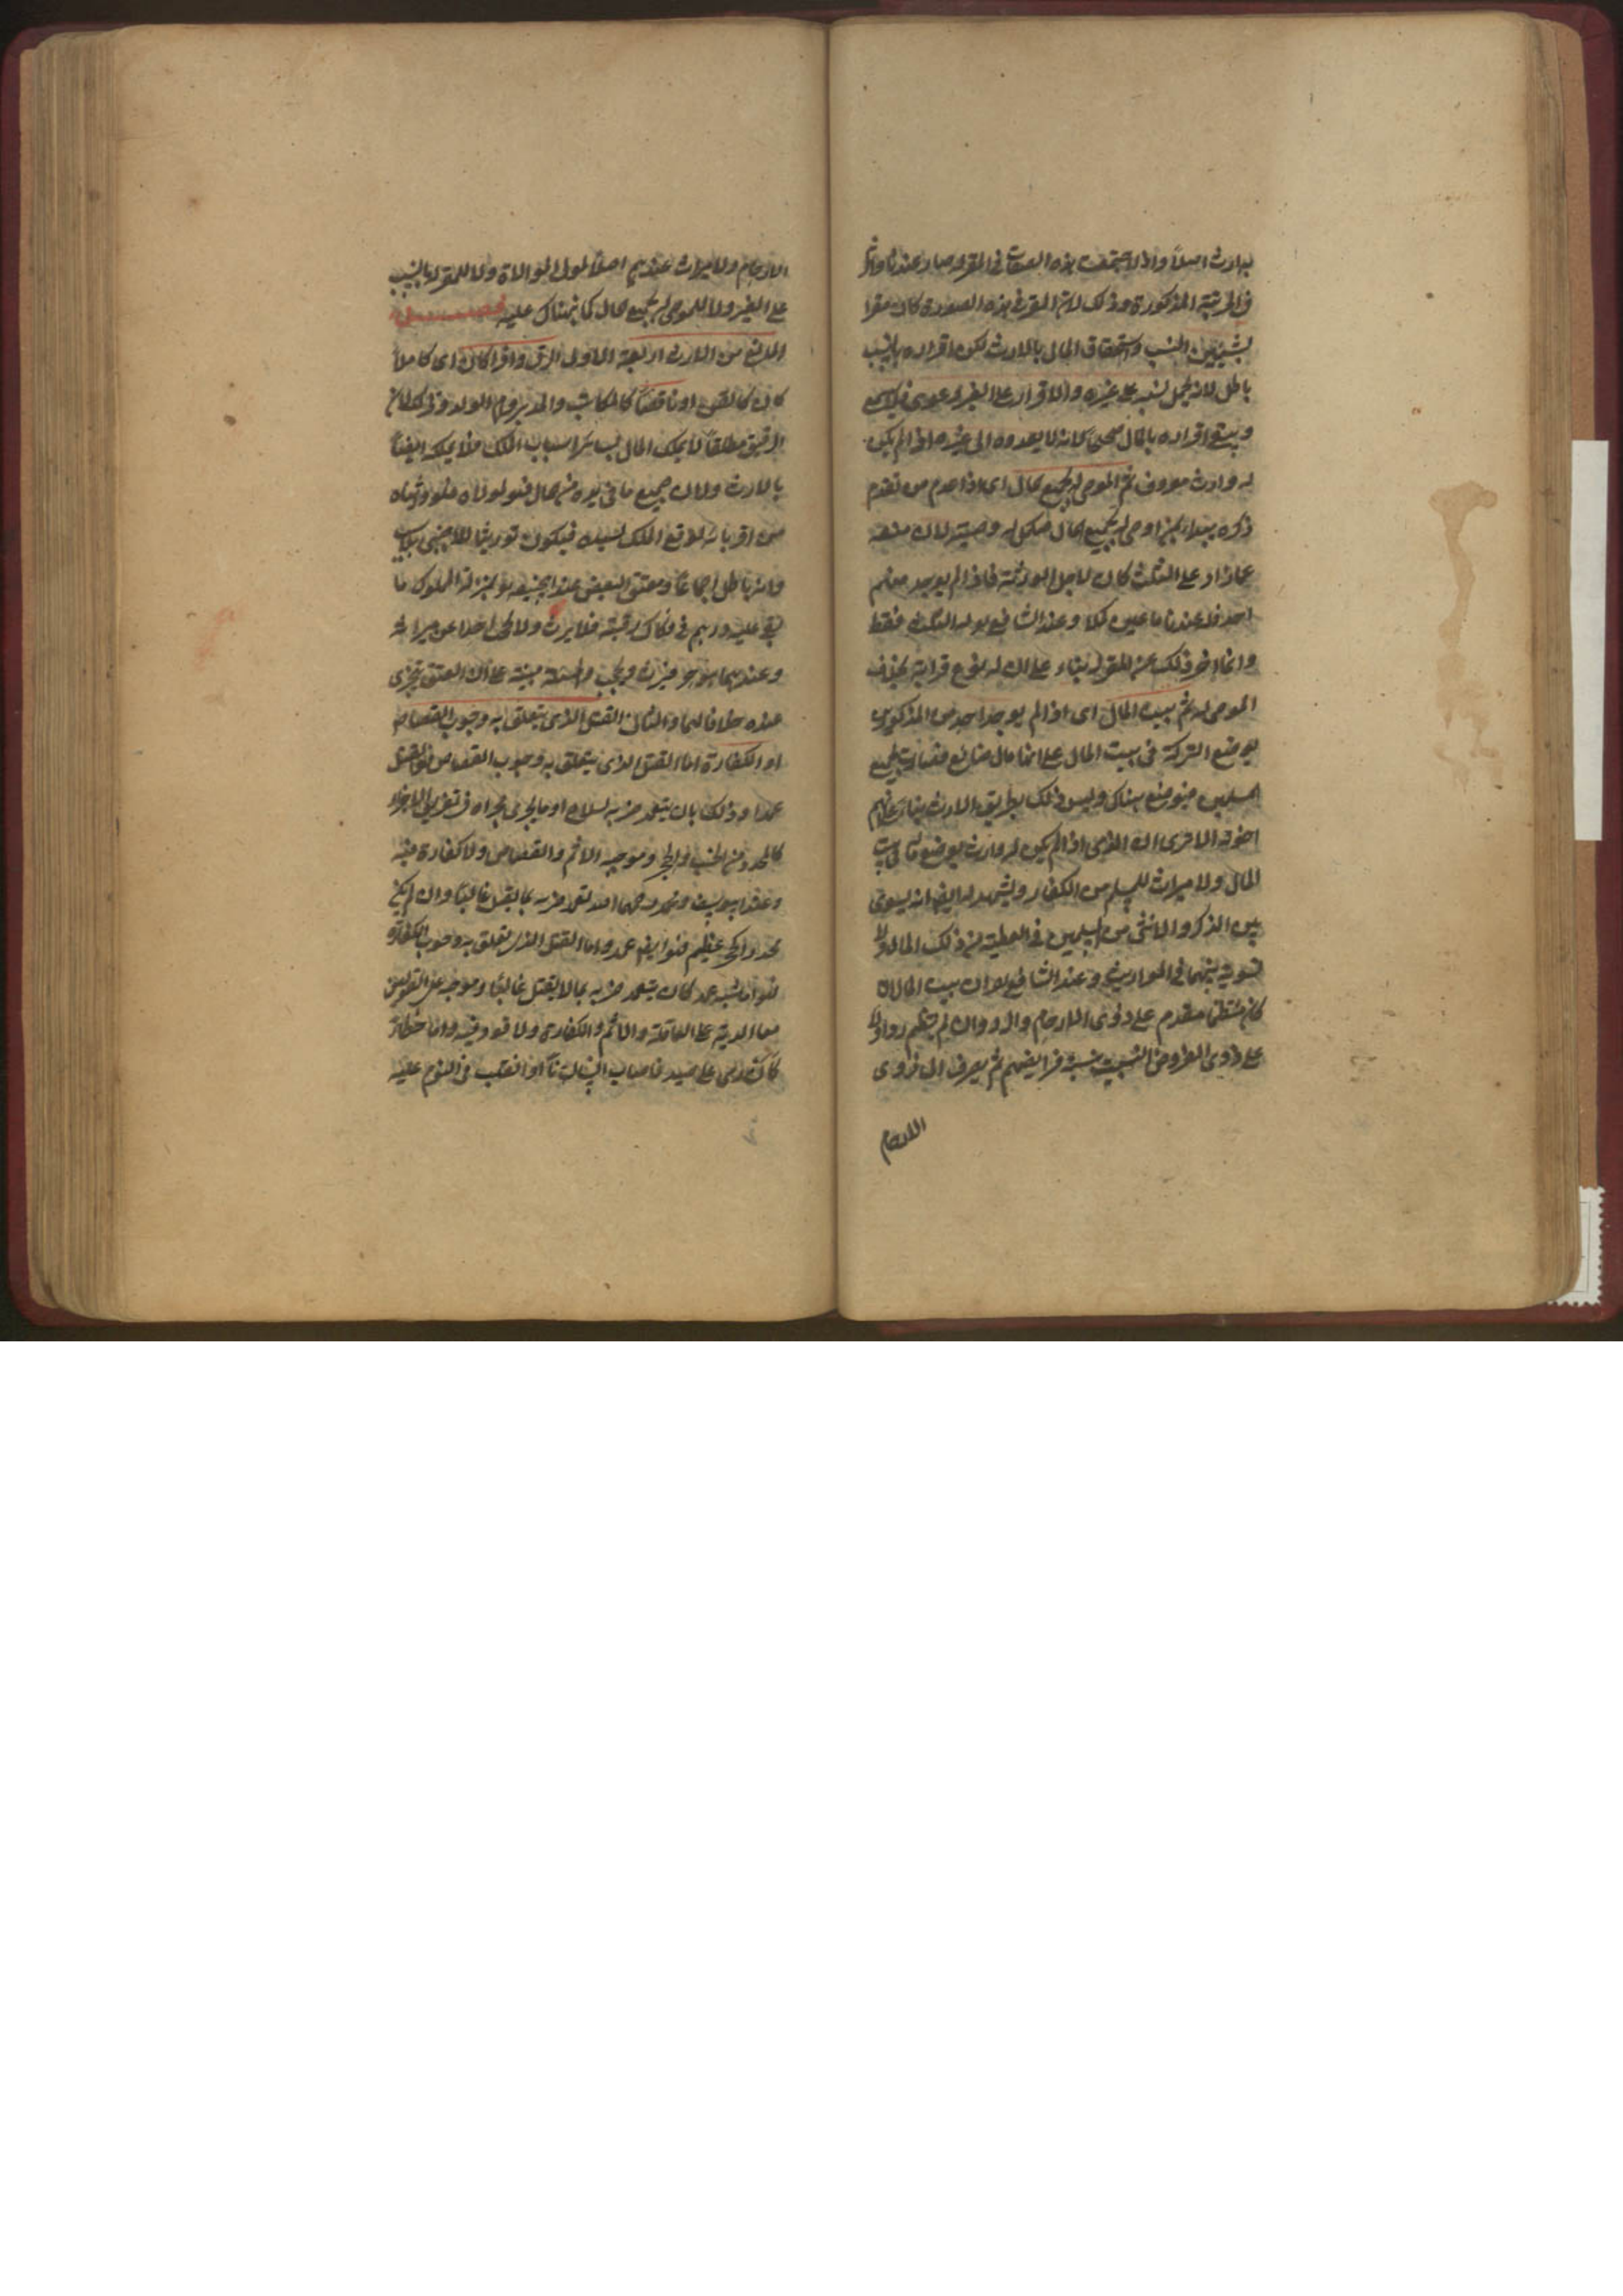 بالارث اصلا واذا اجتمعت هذه الصفات في المقر له صار عندنا وارثا
في المرتبة المذكورة وذلك لان المقر في هذه الصورة كان مقرا
بشيئين النسب واستحقاق المال بالارث لكن اقراره بالنسب
باطل لانه يحمل نسبه على غيره والاقرار على الغير دعوى فلا يسمع
ويبقى اقراره بالمال صحيحا لانه لا يعدوه الى غيره اذا لم يكن
له وارث معروف ثم الموصى له بجميع المال اى اذا عدم من تقدم
ذكره يبدأ بمن اوصى له بجميع المال فيكمل له وصيته لان منعه
عما زاد على الثلث كان لاجل الورثة فاذا لم يوجد منهم
احد فله عندنا ما عين له كملا وعند الشافعي له الثلث فقط
وانما اخر ذلك عن المقر له بناء على ان له نوع قرابة بخلاف
الموصى له ثم بيت المال اى اذا لم يوجد احد من المذكورين
يوضع التركة في بيت المال على انها مال ضائع فصارت لجميع
المسلمين فيوضع هناك وليس ذلك بطريق الارث
الا ترى ان الذمى اذا لم يكن له وارث يوضع ماله في بيت
المال ولا ميراث للمسلم من الكفار ويشهد له ايضا انه يسوى
بين الذكر والانثى من المسلمين في العطية من ذلك المال ولا
تسوية بينهما في المواريث وعند الشافعي ان بيت المال ان
كان منتظما مقدم على ذوى الارحام والرد وان لم ينتظم رد اولا
على ذوى الفروض النسبية بنسبة فرايضهم ثم يصرف الى ذوى
الارحام
الارحام ولا ميراث عندهم اصلا لمولى الموالاة ولا للمقر له بالنسب
على الغير ولا للموصى له بجميع المال كما نبهناك عليه فصل
المانع من الارث اربعة الاول الرق وافرا كان اى كاملا
كان كالقن او ناقصا كالمكاتب والمدبر وام الولد وذلك لان
الرقيق مطلقا لا يملك المال بسائر اسباب الملك فلا يملكه ايضا
بالارث ولان جميع ما في يده من المال فهو لمولاه فلو ورثناه
من اقربائه لوقع الملك لسيده فيكون توريثا للاجنبى بلا سبب
وانه باطل اجماعا ومعتق البعض عند ابي حنيفة بمنزلة المملوك ما
بقى عليه درهم في فكاك رقبته فلا يرث ولا يحجب احدا عن ميراثه
وعندهما هو حر فيرث ويحجب والمسئلة مبنية على ان العتق يتجزى
عنده خلافا لهما والثانى القتل الذى يتعلق به وجوب القصاص
او الكفارة اما القتل الذى يتعلق به وجوب القصاص فهو القتل
عمدا وذلك بان يتعمد ضربه بسلاح او ما يجرى مجراه في تفريق الاجزاء
كالمحدد من الخشب والحجر وموجبه الاثم والقصاص ولا كفارة فيه
وعند ابي يوسف ومحمد رحمهما الله تعمد ضربه بما يقتل غالبا وان لم يكن
محددا كحجر عظيم فهو ايضا عمد واما القتل الذى يتعلق به وجوب الكفارة
فهو اما شبه عمد كان يتعمد ضربه بما لا يقتل غالبا وموجبه على القولين
معا الدية على العاقلة والاثم والكفارة ولا قود فيه واما خطاء
كان رمى على صيد فاصاب انسانا او انقلب في النوم عليه